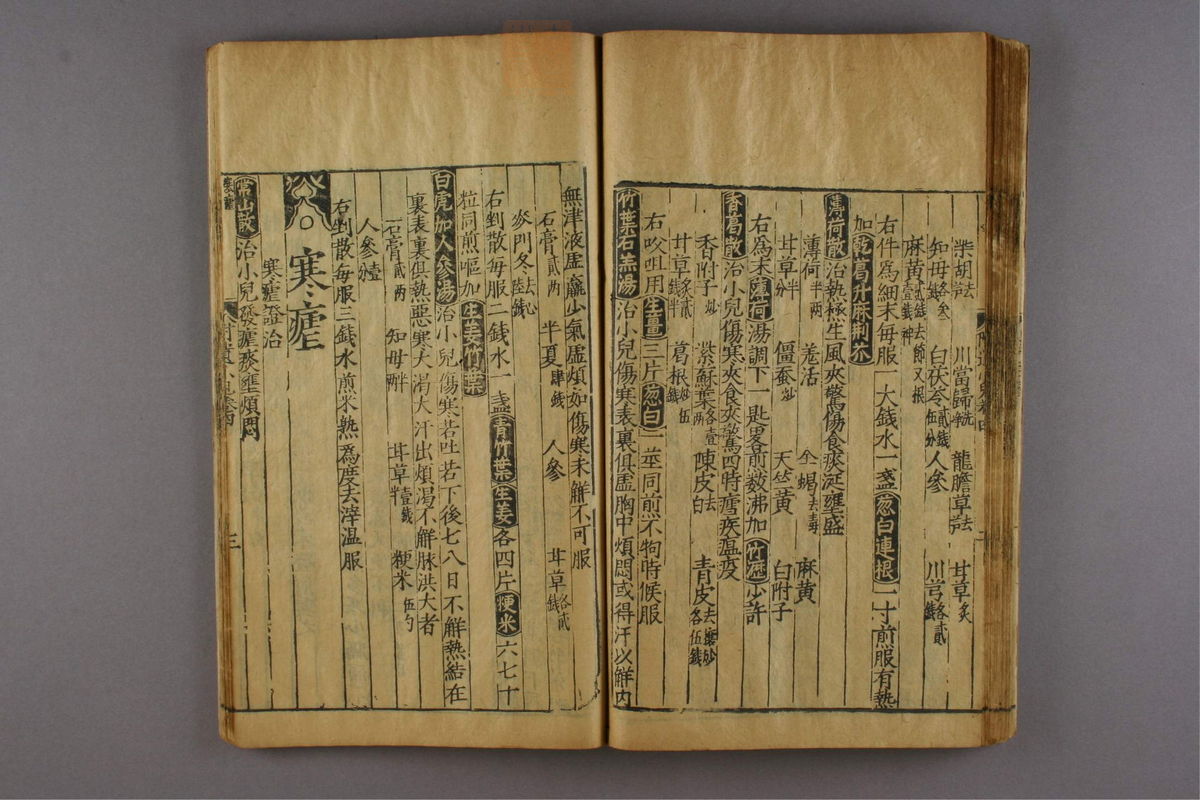 柴胡去蘆 川當歸 龍膽草去蘆 甘草炙
知母各三錢 白茯苓貳錢伍分 人參 川芎各貳錢
麻黃壹錢去節又根
右件爲細末每服一大錢水一盞葱白連根二寸煎服有熱
加乾葛升麻荊芥
薄荷散治熱極生風夾驚傷食痰涎壅盛
薄荷半兩 羗活 全蝎去毒 麻黃
甘草半分 僵蚕炒 天竺黃 白附子
右爲末薄荷湯調下一匙畧煎数沸加竹瀝少許
香葛散治小兒傷寒夾食夾驚四時瘴疾瘟疫
香附子炒 紫蘇葉各壹兩 陳皮去白 青皮去穰炒
甘草炙貳錢半 葛根炒伍錢 各伍錢
右㕮咀用生薑三片葱白二莖同煎不拘時候服
竹葉石羔湯治小兒傷寒表裏俱虛胸中煩悶或得汗以解內
無津液虛羸少氣虛煩如傷寒未解不可服
石膏貳兩 半夏肆錢 人參 甘草各貳錢
麥門冬去心陸錢
右剉散每服二錢水一盞青竹葉生姜各四片粳米六七十
粒同煎嘔加生姜竹葉
白虎加人參湯治小兒傷寒若吐若下後七八日不解熱結在
裏表裏俱熱惡寒大渴大汗出煩渴不解脉洪大者
石膏貳兩 知母半兩 甘草壹錢半 粳米伍勺
人參壹錢
右剉散每服三錢水煎米熟爲度去滓温服
寒瘧
寒瘧證治
常山散治小兒發瘧痰壅煩悶